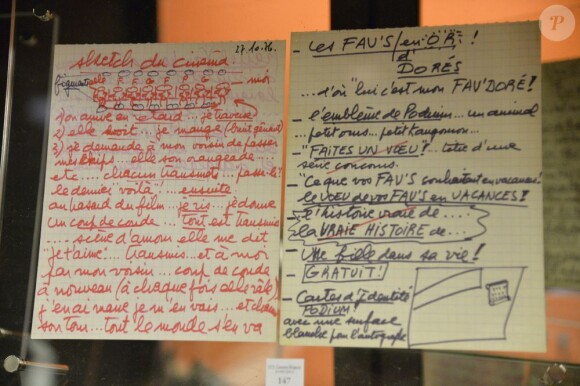 27.10.76
sketch du cinéma
fragments
elle
moi
1) on arrive en retard... je traverse
2) elle sort... je mange (bruit gênant)
3) je demande à mon voisin de passer
mes chips... elle son orangeade
etc... chacun transmet... passe-lui
le dernier voilà"... ensuite
au hasard du film... je ris... je donne
un coup de coude... tout est transmis
.... scène d'amour elle me dit
"je t'aime"... transmis... et à moi
par mon voisin... coup de coude
à nouveau (à chaque fois elle râle)
j'en ai marre je m'en vais... et chacun
son tour... tout le monde s'en va
- Les FAV'S / en OR!
d
DORÉS
...d'où "lui c'est mon FAV'DORÉ!
- l'emblème de Podium... un animal
...petit ours... petit kangourou...
- "FAITES UN VŒU!"... titre d'une
série concours.
- "Ce que vos FAV'S souhaitent en vacances!
le VŒU de vos FAV'S en VACANCES!
- l'histoire vraie de....
la VRAIE HISTOIRE de...
- Une fille dans sa vie!
- GRATUIT!
- Cartes d'Identité
PODIUM
avec une surface
blanche pour l'autographe
147
P